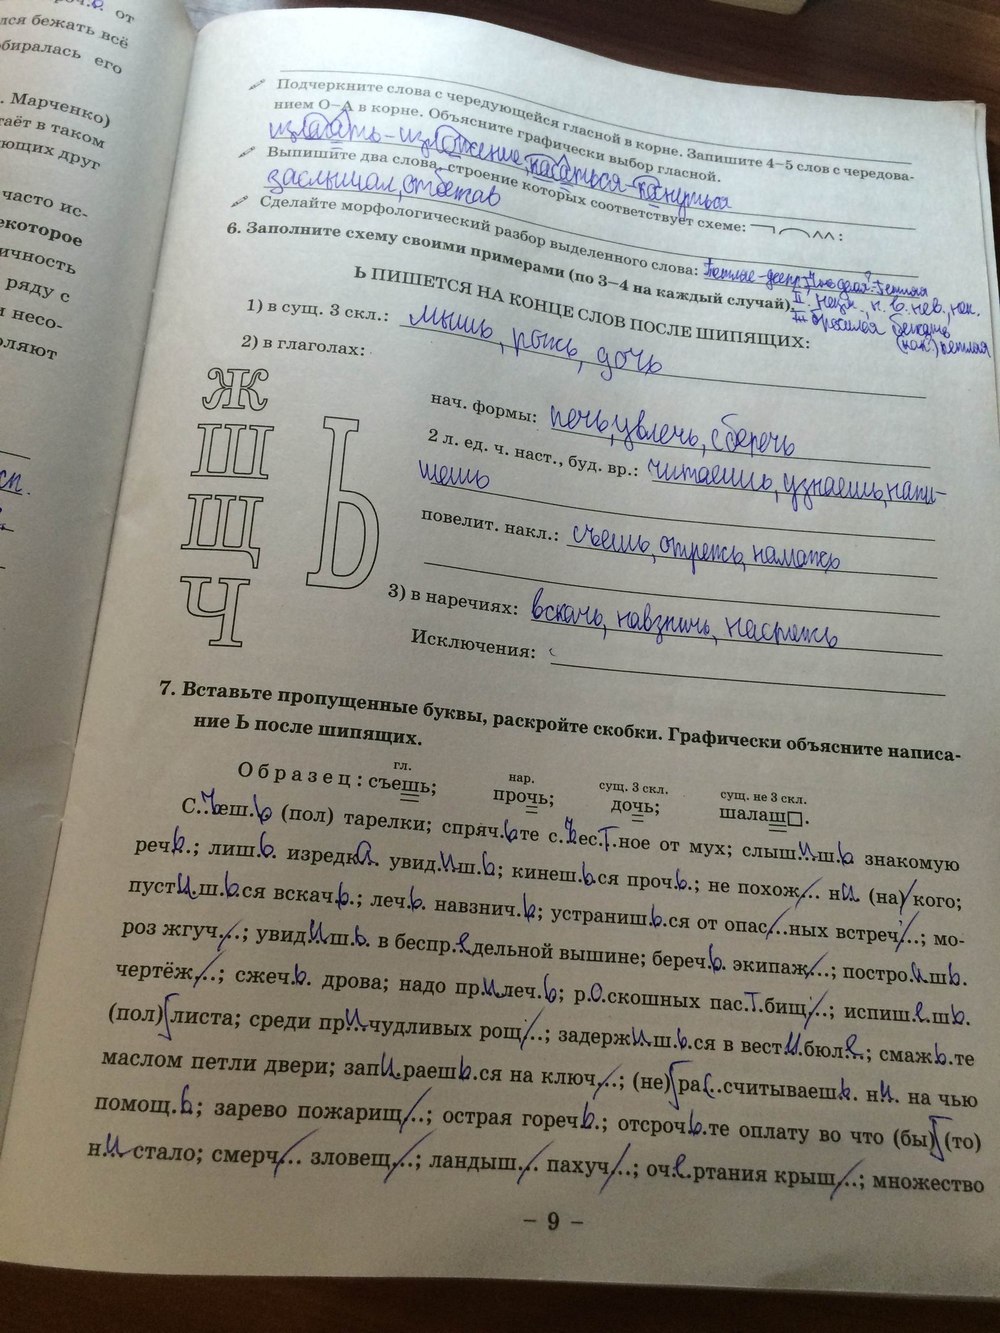 от
лся бежать всё
биралась его
. Марченко)
таёт в таком
ющих друг
часто ис-
екоторое
ичность
ряду с
и несо-
оляют
Подчеркните слова с чередующейся гласной в корне. Запишите 4–5 слов с чередова-
нием О–А в корне. Объясните графически выбор гласной.
излагать – изложение, касаться – коснуться
Выпишите два слова, строение которых соответствует схеме:
заслышал, ответав
Сделайте морфологический разбор выделенного слова:
6. Заполните схему своими примерами (по 3–4 на каждый случай).
Ь ПИШЕТСЯ НА КОНЦЕ СЛОВ ПОСЛЕ ШИПЯЩИХ:
1) в сущ. 3 скл.: мышь, рожь, дочь
2) в глаголах:
Ж
Ш
Щ
Ч
Ь
нач. формы: печь, увлечь, сберечь
2 л. ед. ч. наст., буд. вр.: читаешь, узнаешь, напи-
шешь
повелит. накл.: съешь, отрежь, намажь
3) в наречиях: вскачь, навзничь, настежь
Исключения:
7. Вставьте пропущенные буквы, раскройте скобки. Графически объясните написа-
ние Ь после шипящих.
гл. нар. сущ. 3 скл. сущ. не 3 скл.
Образец: съешь; прочь; дочь; шалаш□.
С.ъ.еш.ь (пол) тарелки; спряч.ь.те с.ъ.ес.т.ное от мух; слыш.и.ш.ь знакомую
реч.ь.; лиш.ь. изредк.а увид.и.ш.ь; кинеш.ь.ся проч.ь.; не похож... н.и (на)/кого;
пуст.и.ш.ь.ся вскач.ь.; леч.ь. навзнич.ь; устраниш.ь.ся от опас...ных встреч...; мо-
роз жгуч...; увид.и.ш.ь. в беспр.е.дельной вышине; береч.ь. экипаж...; постро.и.шь.
чертёж...; сжеч.ь. дрова; надо пр.и.леч.ь; р.о.скошных пас.т.бищ...; испиш.е.шь.
(пол) листа; среди пр.и.чудливых рощ...; задерж.и.ш.ь.ся в вест.и.бюл.е.; смаж.ь.те
маслом петли двери; зап.и.раеш.ь.ся на ключ...; (не) ра.с.считываеш.ь. н.и. на чью
помощ.ь; зарево пожарищ...; острая гореч.ь.; отсроч.ь.те оплату во что (бы) (то)
н.и стало; смерч... зловещ...; ландыш... пахуч...; оч.е.ртания крыш...; множество
– 9 –